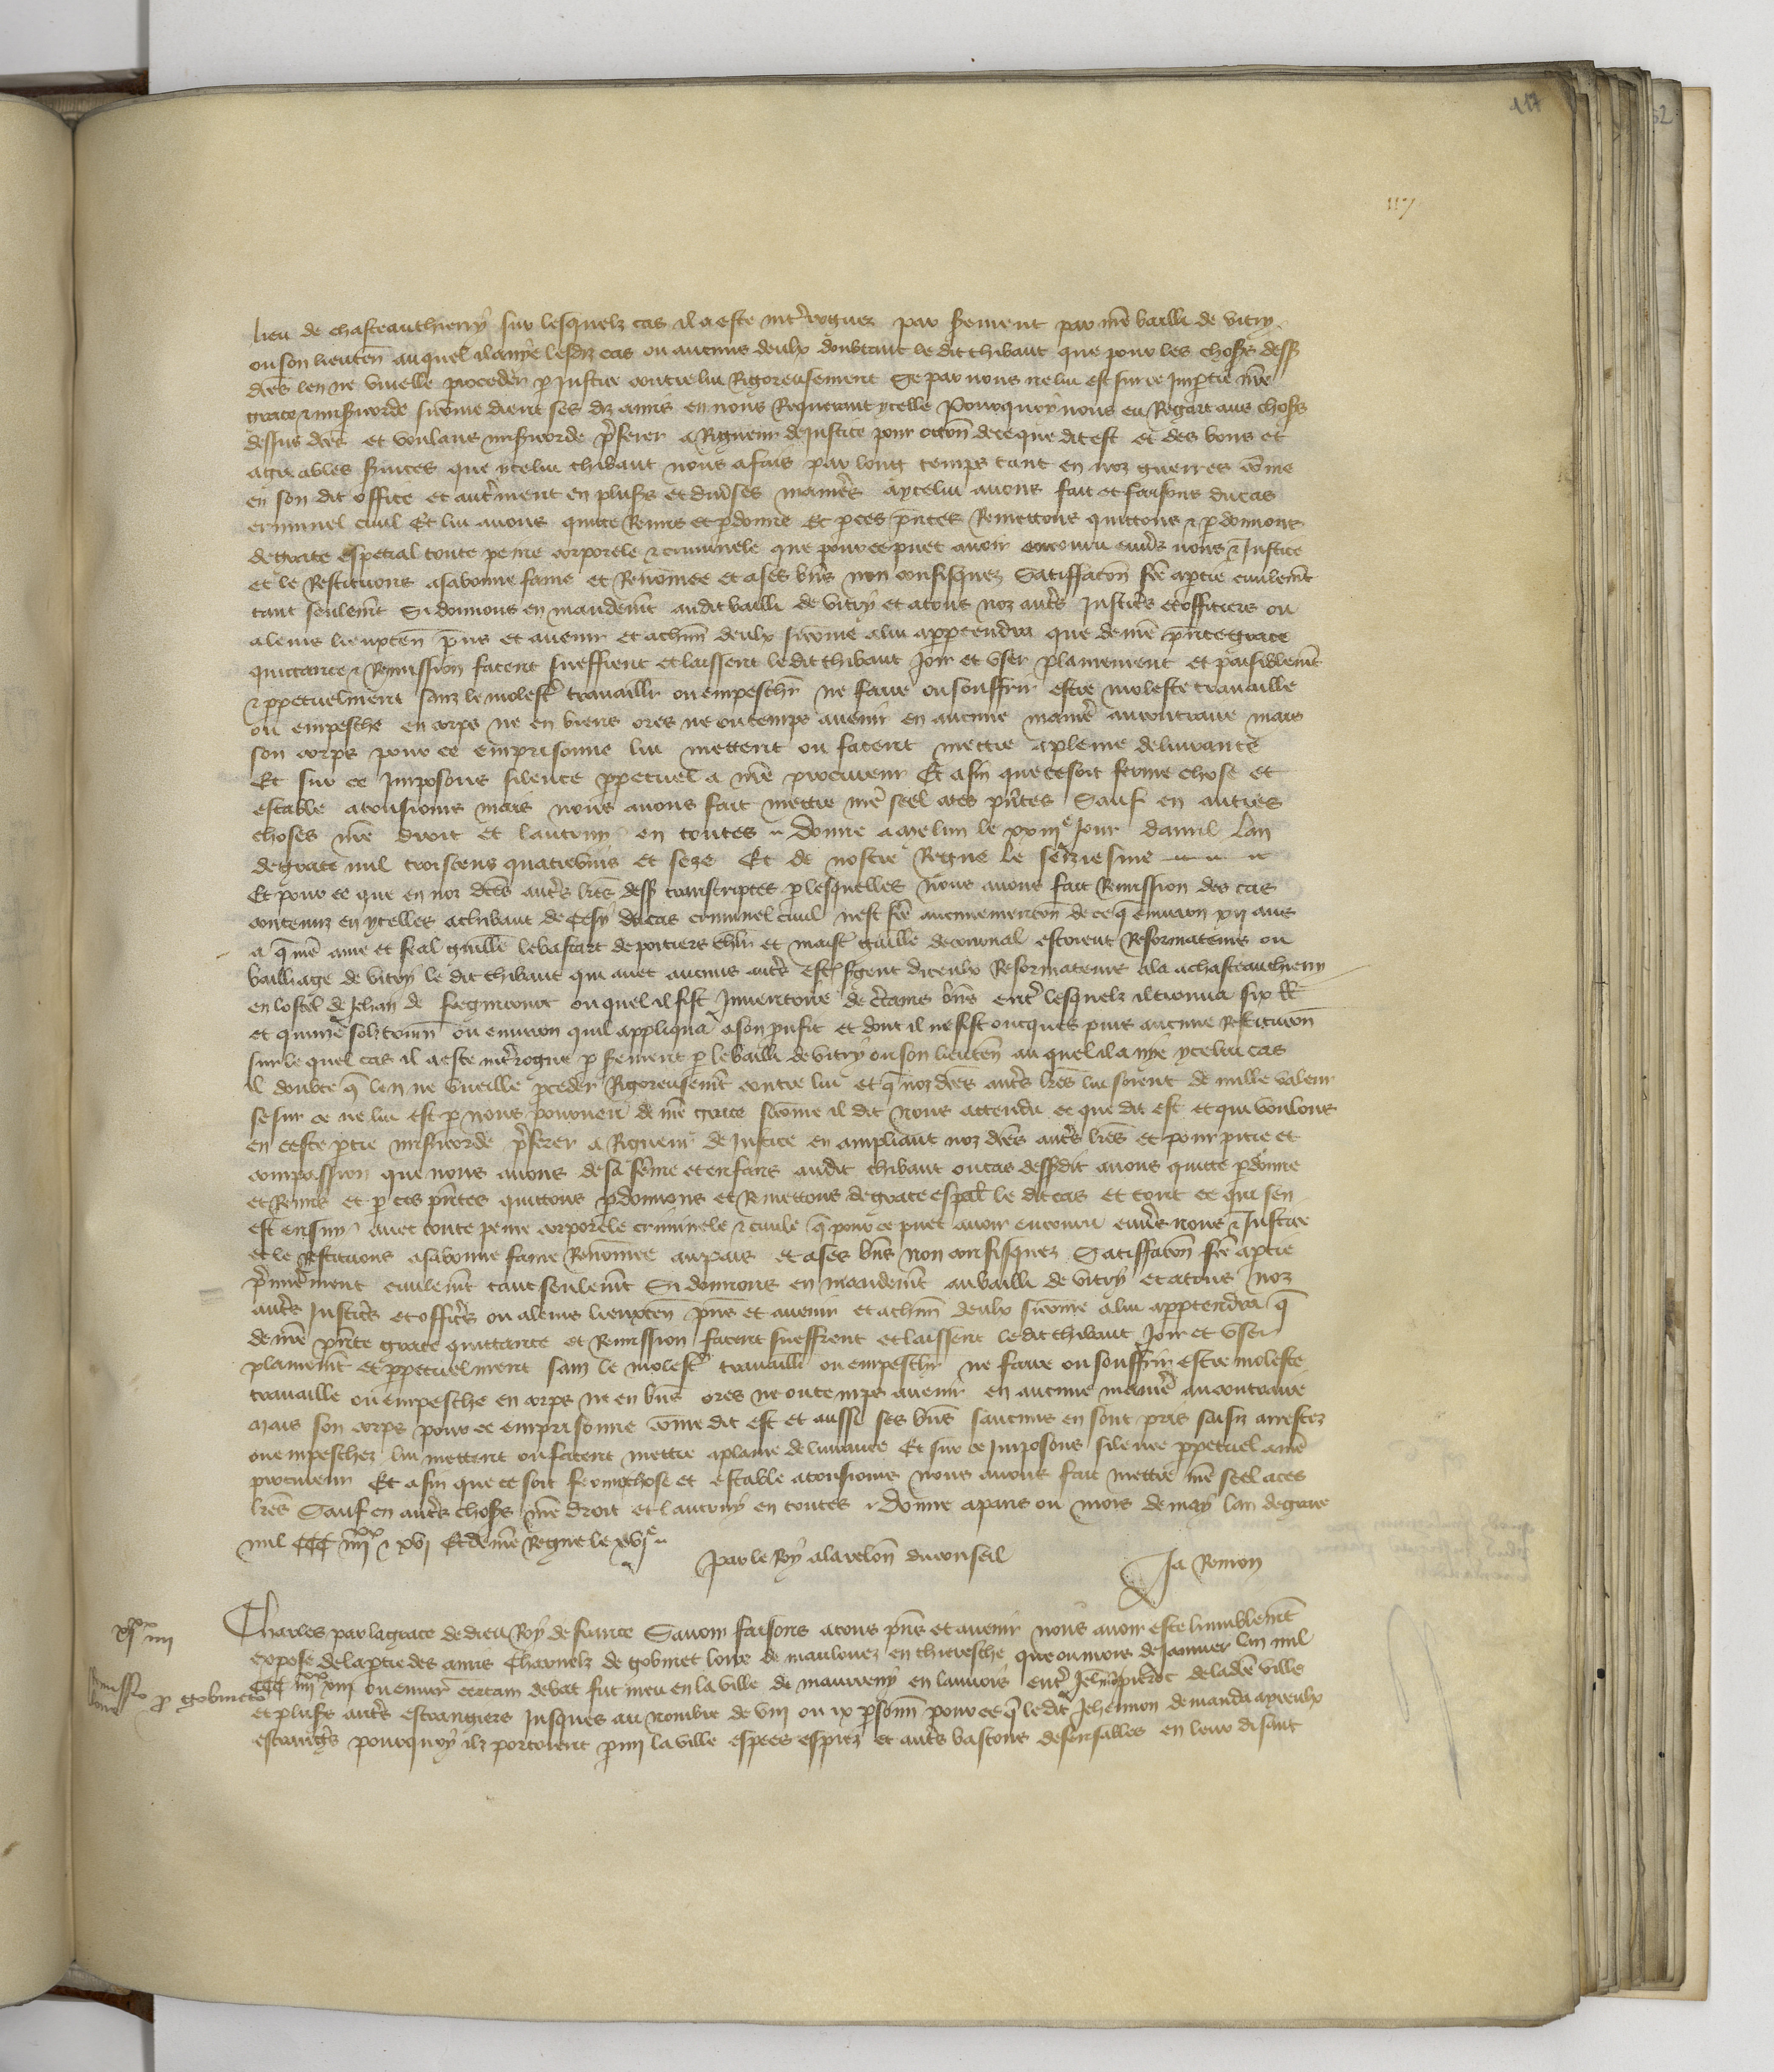 117
117
lieu de chasteauthierry sur lesquelz cas il a este int'roguez par s'ement par nre bailli de vitry
ou son lieuten auquel il a nye lesdiz cas ou aucuns deulx doubtant le dit thibaut que pour les choses dess
dces len ne vueille proceder p justice contre lui Rigoreusement Se par nous ne lui est sur ce Imptie nre
grace & misicorde sicome dient ses diz amis en nous Requerant ycelle Pourquoy nous eu Regart aus choses
dessus dces et voulans misicorde p'ferer a Rigueur de justice pour occon de ce que dit est et des bons et
agreables svices que ycelui thibaut nous a fais par long temps tant en noz guerres come
en son dit office et aut'ment en pluss et div'ses manie's a ycelui avons fait et faisons du cas
criminel civil Et lui avons quicte Remis et pdonne Et p ces pntes Remettons quittons & pdonnons
de grace especial toute peine corporele & criminele que pour ce puet avoir encouru env's nous & Justice
et le Restituons a sa bonne fame et Renomee et a ses bns non confisquez Satiffacon fce a ptie civilemt
tant seulemt Si donnons en mandemt au dit bailli de vitry et a tous noz aut's Justic's et officiers ou
a leurs lieuxten pns et avenir et a chun deulx sicome a lui apptendra que de nre pnte grace
quittance & Remission facent sueffrent et laissent le dit thibaut Joir et user plainement et paisiblemt
& ppetuelment sanz le molest' travaill'r ou empesch'r ne faire ou souffrir estre moleste travaille
ou empesche en corps ne en biens ores ne ou temps avenir en aucune manie' au contraire mais
son corps pour ce emprisonne lui mettent ou facent mettre a pleine delivrance
Et sur ce Imposons silence ppetuel a nre procureur Et afin que ce soit ferme chose et
estable a tousiours mais nous avons fait mettre nre seel a ces pntes Sauf en autres
choses nre droit et lautruy en toutes Donne a meleun le xxiije Jour davril Lan
de grace mil troiscens quatrevins et seze Et de nostre Regne le seiziesme
Et pour ce que en noz dces aut's lres dess transcriptes p lesquelles Nous avons fait Remission des cas
contenuz en ycelles a thibaut de Cesy du cas criminel civil nest fce aucune mencon de ce q environ xij ans
a q nre ame et feal guille le bastart de poitiers chlr et maist' guille de oronal estoient Reformateurs ou
bailliage de vitry le dit thibaut qui avec aucuns aut's est' sgent diceulx Reformateurs ala a chasteauthierry
en lostel de Jehan de ouquel il fist Inventoire de c'tains bns ent' lesquelz il trouva six fr
et quinze solz tourn ou environ quil appliqua a son pufit et dont il ne fist oncques puis aucune Restitucon
sur le quel cas il a este int'rogue p s'ement p le bailli de vitry ou son lieuten au quel il a nye ycelui cas
il doubte q len ne vueille pceder Rigoreusemt contre lui et q noz dces aut's lres lui soient de nulle valeur
se sur ce ne lui est p nous pourveu de nre grace sicome il dit Nous attendu ce que dit est et qui voulons
en ceste ptie misicorde p'ferer a Rigueur de Justice en ampliant noz dces aut's lres et pour pitie et
compassion que nous avons de sa feme et enfans au dit thibaut ou cas dessdit avons quitte pdonne
et Remis et p ces pntes quittons pdonnons et Remettons de grace espal le dit cas et tout ce qui sen
est ensuy avec toute peine corporele criminele & civile q pour ce puet avoir encouru env's nous & Justice
et le Restituons a sa bonne fame Renomee au pais et a ses bns non confisquez Satiffacon fce a ptie
p'mie'ment civilemt tant seulemt Si donnons en mandemt au bailli de vitry et a tous Noz
aut's Justic's et offic's ou a leurs lieuxten pns et avenir et a chun deulx sicome a lui apptendra q
de nre pnte grace quittance et Remission facent sueffrent et laissent le dit thibaut Joir et user
plainemt et ppetuelment sanz le molest' travaill' ou empesch'r ne faire ou souffrir estre moleste
travaille ou empesche en corps ne en bns ores ne ou temps avenir en aucune manie' au contraire
Mais son corps pour ce emprisonne come dit est et aussi ses bns saucuns en sont pris saisiz arrestez
ou empeschez lui mettent ou facent mettre a plaine delivrance Et sur ce Imposons silence ppetuel a nre
procureur Et afin que ce soit ferme chose et estable a tousiours nous avons fait mettre nre seel a ces
lres Sauf en aut's choses nre droit et lautruy en toutes Donne a paris ou mois de may lan de grace
mil CCC iiijxx & xvj Et de nre Regne le xvje
Par le Roy a la relon du conseil Ja Remon
xxiiij
Charles par la grace de dieu Roy de france Savoir faisons a tous pns et avenir nous avoir este humblemt
expose de la ptie des amis Charnelz de gobinet lorre de maulouez en thieresche que ou mois de Janvier lan mil
Remissio p gobineto lorre
CCC iiijxx xiij ou envir certain debat fut meu en la ville de en lannois ent' de ladce ville
et pluss aut's estrangiers Jusques au nombre de viij ou ix psonn pour ce q le dit Jehennon demanda ayceulx
estrang's pourquoy ilz portoient p my la ville espees espiez et aut's bastons deffensables en leur disant